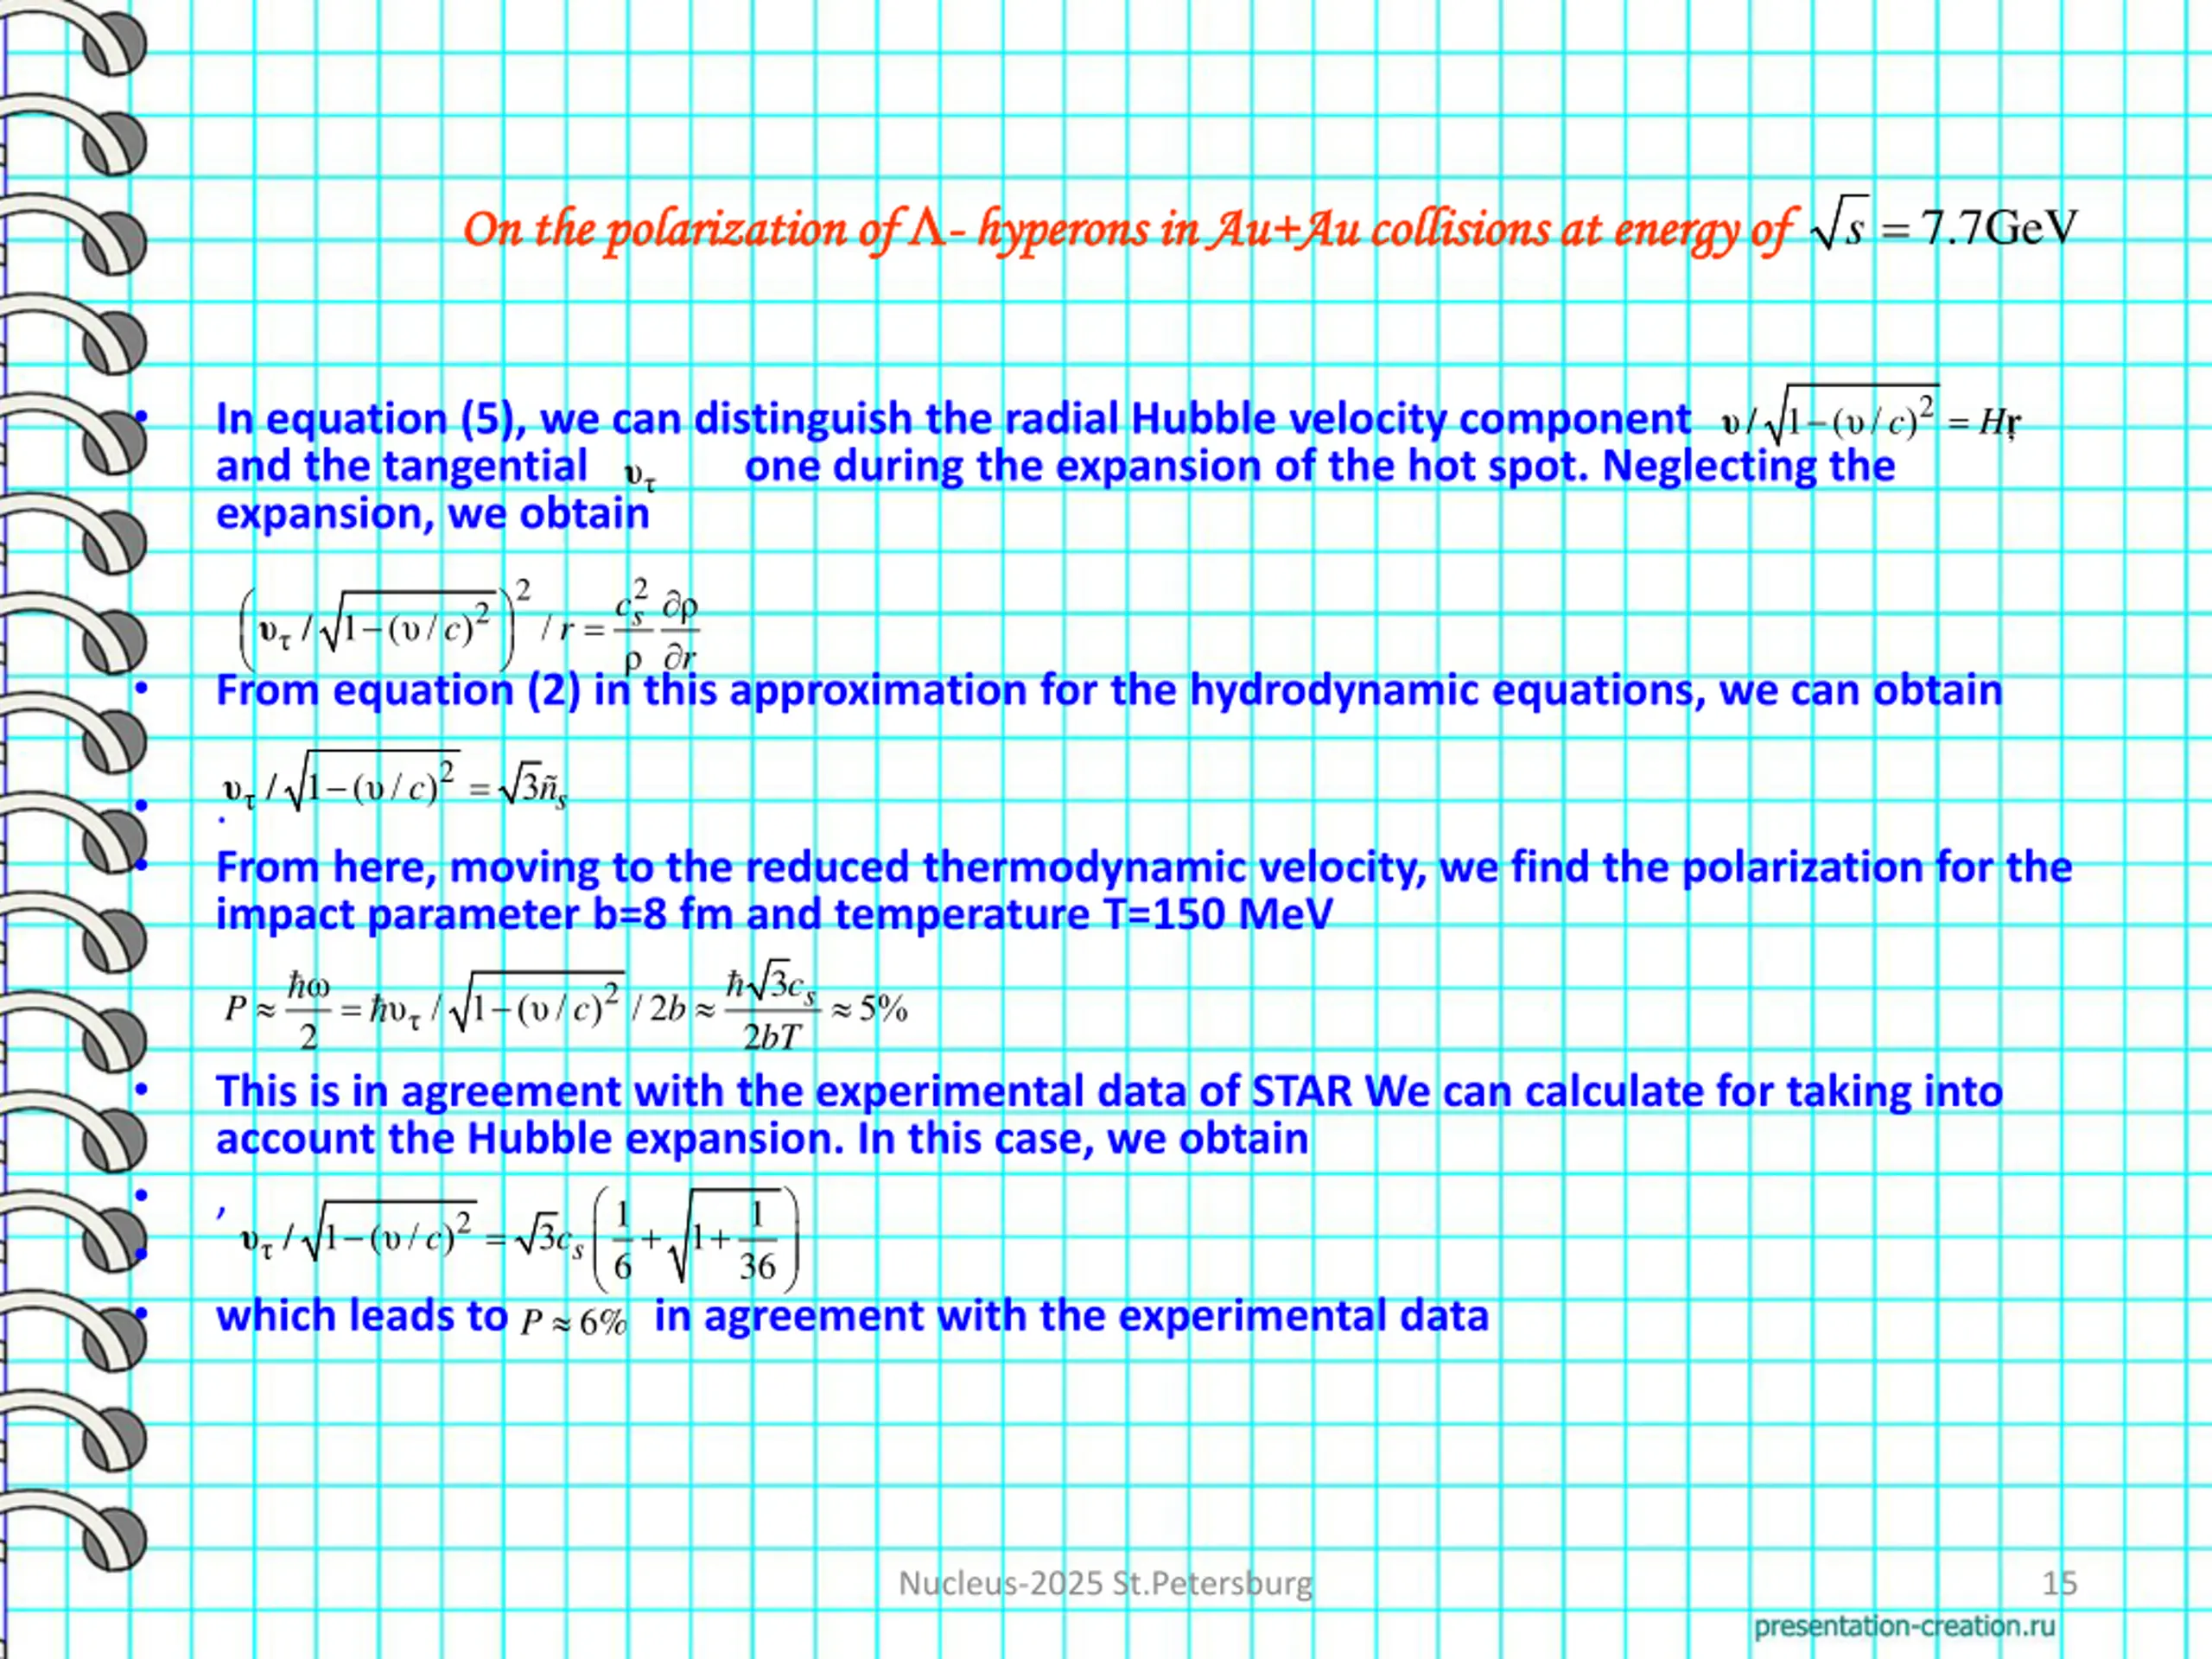 On the polarization of Λ- hyperons in Au+Au collisions at energy of √s = 7.7GeV
• In equation (5), we can distinguish the radial Hubble velocity component υ/√(1−(υ/c)²) = Hr
and the tangential υτ one during the expansion of the hot spot. Neglecting the
expansion, we obtain
(υτ/√(1−(υ/c)²))²/r = (c_s²/ρ)(∂ρ/∂r)
• From equation (2) in this approximation for the hydrodynamic equations, we can obtain
υτ/√(1−(υ/c)²) = √3ñ_s
• .
• From here, moving to the reduced thermodynamic velocity, we find the polarization for the
impact parameter b=8 fm and temperature T=150 MeV
P ≈ ħω/2 = ħυτ/√(1−(υ/c)²)/2b ≈ ħ√3c_s/2bT ≈ 5%
• This is in agreement with the experimental data of STAR We can calculate for taking into
account the Hubble expansion. In this case, we obtain
• ,
• υτ/√(1−(υ/c)²) = √3c_s(1/6+√(1+1/36))
• which leads to P ≈ 6% in agreement with the experimental data
Nucleus-2025 St.Petersburg 15
presentation-creation.ru